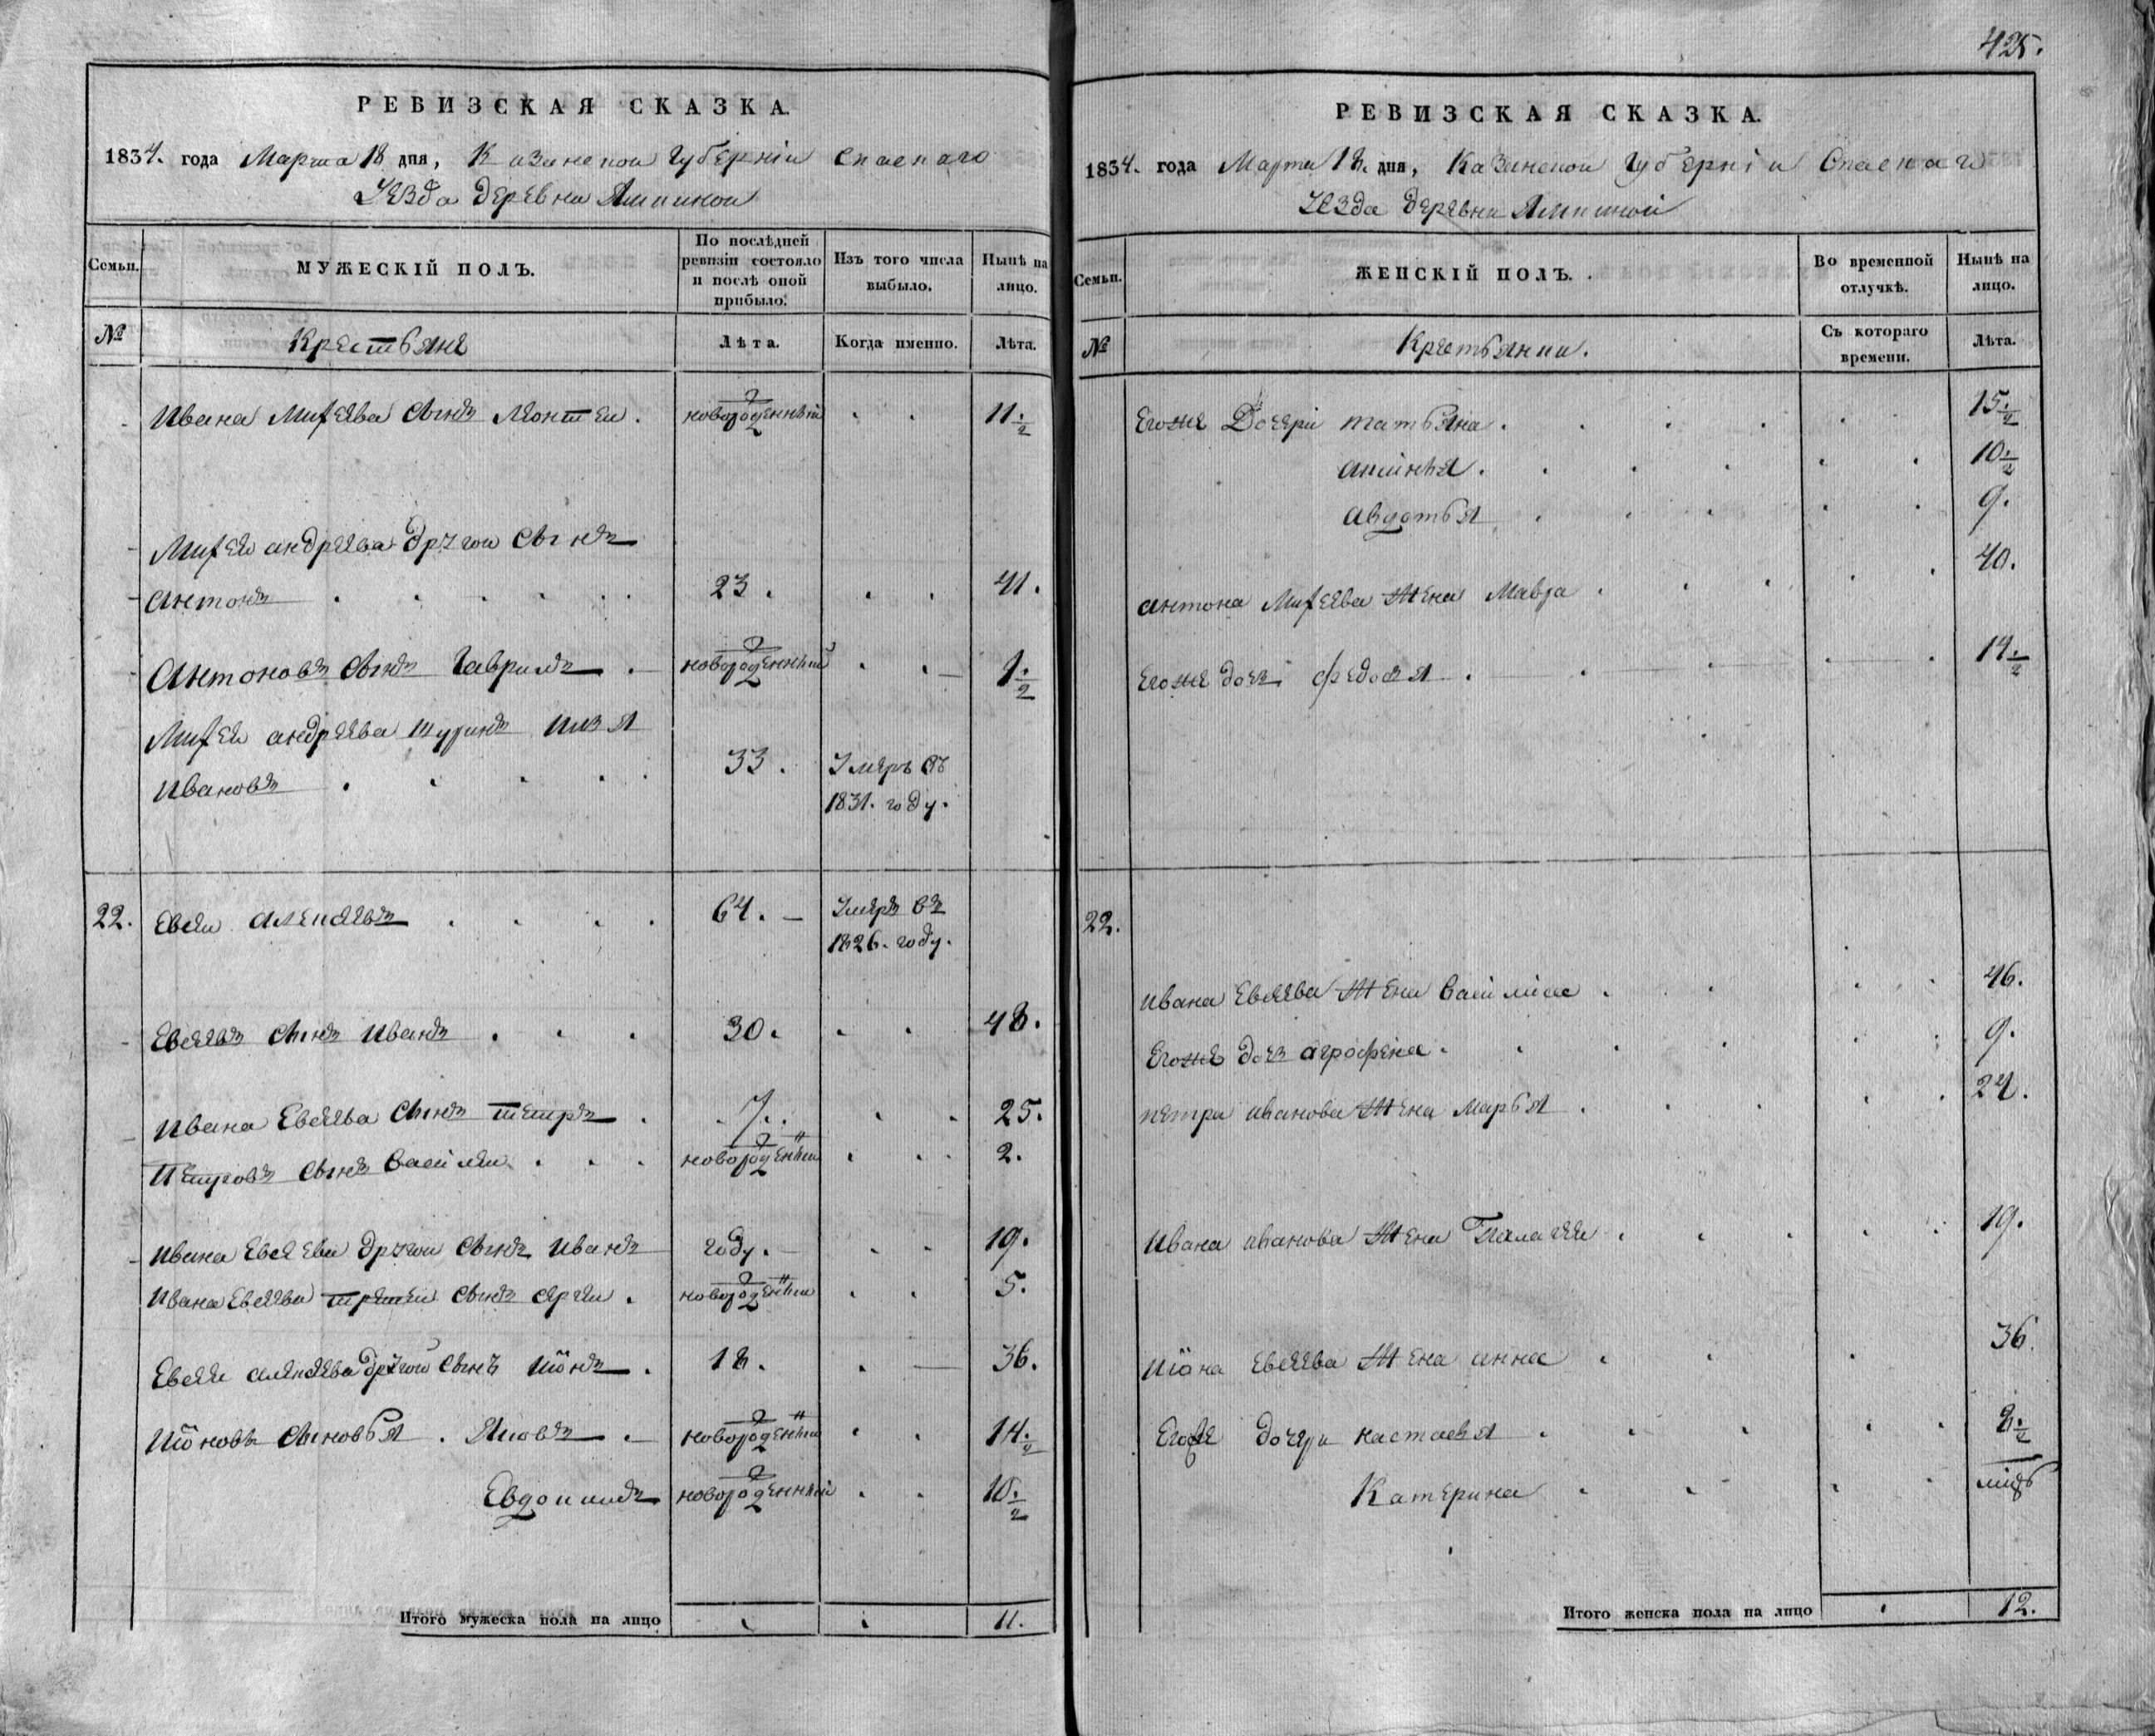 425.
РЕВИЗСКАЯ СКАЗКА.
1834. года Марта 18 дня, Казанской губернiи Спаскаго
Уезда деревни Ямкиной
Семьи. МУЖЕСКIЙ ПОЛЪ. По послѣдней ревизiи состояло и послѣ оной прибыло. Изъ того числа выбыло. Нынѣ на лицо.
№ Крестьяне Лѣта. Когда именно. Лѣта.
Ивана Мифеева сынъ Леонтеи . новорожденный . . 11 1/2
Мифеи андреева другои сынъ
антонъ . . . . . 23 . . . 41 .
антоновъ сынъ Гаврилъ . новорожденный . . 1 1/2
Мифеи андреева шуринъ
Ивановъ . . . . . 33 . Умеръ въ
1831. году.
22. Евсеи алексеевъ . . . . 64 . Умеръ въ
1826. году.
Евсеевъ сынъ Иванъ . . . 30 . . . 48 .
Ивана Евсеева сынъ петръ . 7. . . 25.
Петровъ сынъ Василеи . . . новорожденный . . 2.
Ивана Евсеева другои сынъ Иванъ году. . . 19.
Ивана Евсеева третеи сынъ сергеи . новорожденный . . 5.
Евсея алексеева другой сынъ Iионъ . 18. . 36.
Iионовъ сыновья . Яковъ . новорожденный . . 14 1/2
Евдокимъ новорожденный . . 10 1/2
Итого мужеска пола на лицо . . 11.
РЕВИЗСКАЯ СКАЗКА.
1834. года Марта 18. дня, Казанской губернiи Спаскаго
Уезда деревни Ямкиной
Семьи. ЖЕНСКIЙ ПОЛЪ. Во временной отлучкѣ. Нынѣ на лицо.
№ Крестьянки. Съ котораго времени. Лѣта.
Егоже Дочери татьяна . . . . . 15 1/2
аксинья . . . . . . 10 1/2
авдотья . . . . . 9.
антона Мифеева жена Мавра . . . . . 40.
Егоже дочь федосья . . . . . 14 1/2
22.
Ивана Евсеева жена Василиса . . . . . 46.
Егоже дочь агрофена . . . . . . 9.
петра иванова жена Марья . . . . . 24.
Ивана иванова жена Пелагея . . . . . 19.
Iиона Евсеева жена анна . . . 36.
Егоже дочери настасья . . . . . 8 1/2
Катерина . . . .
Итого женска пола на лицо . 12.